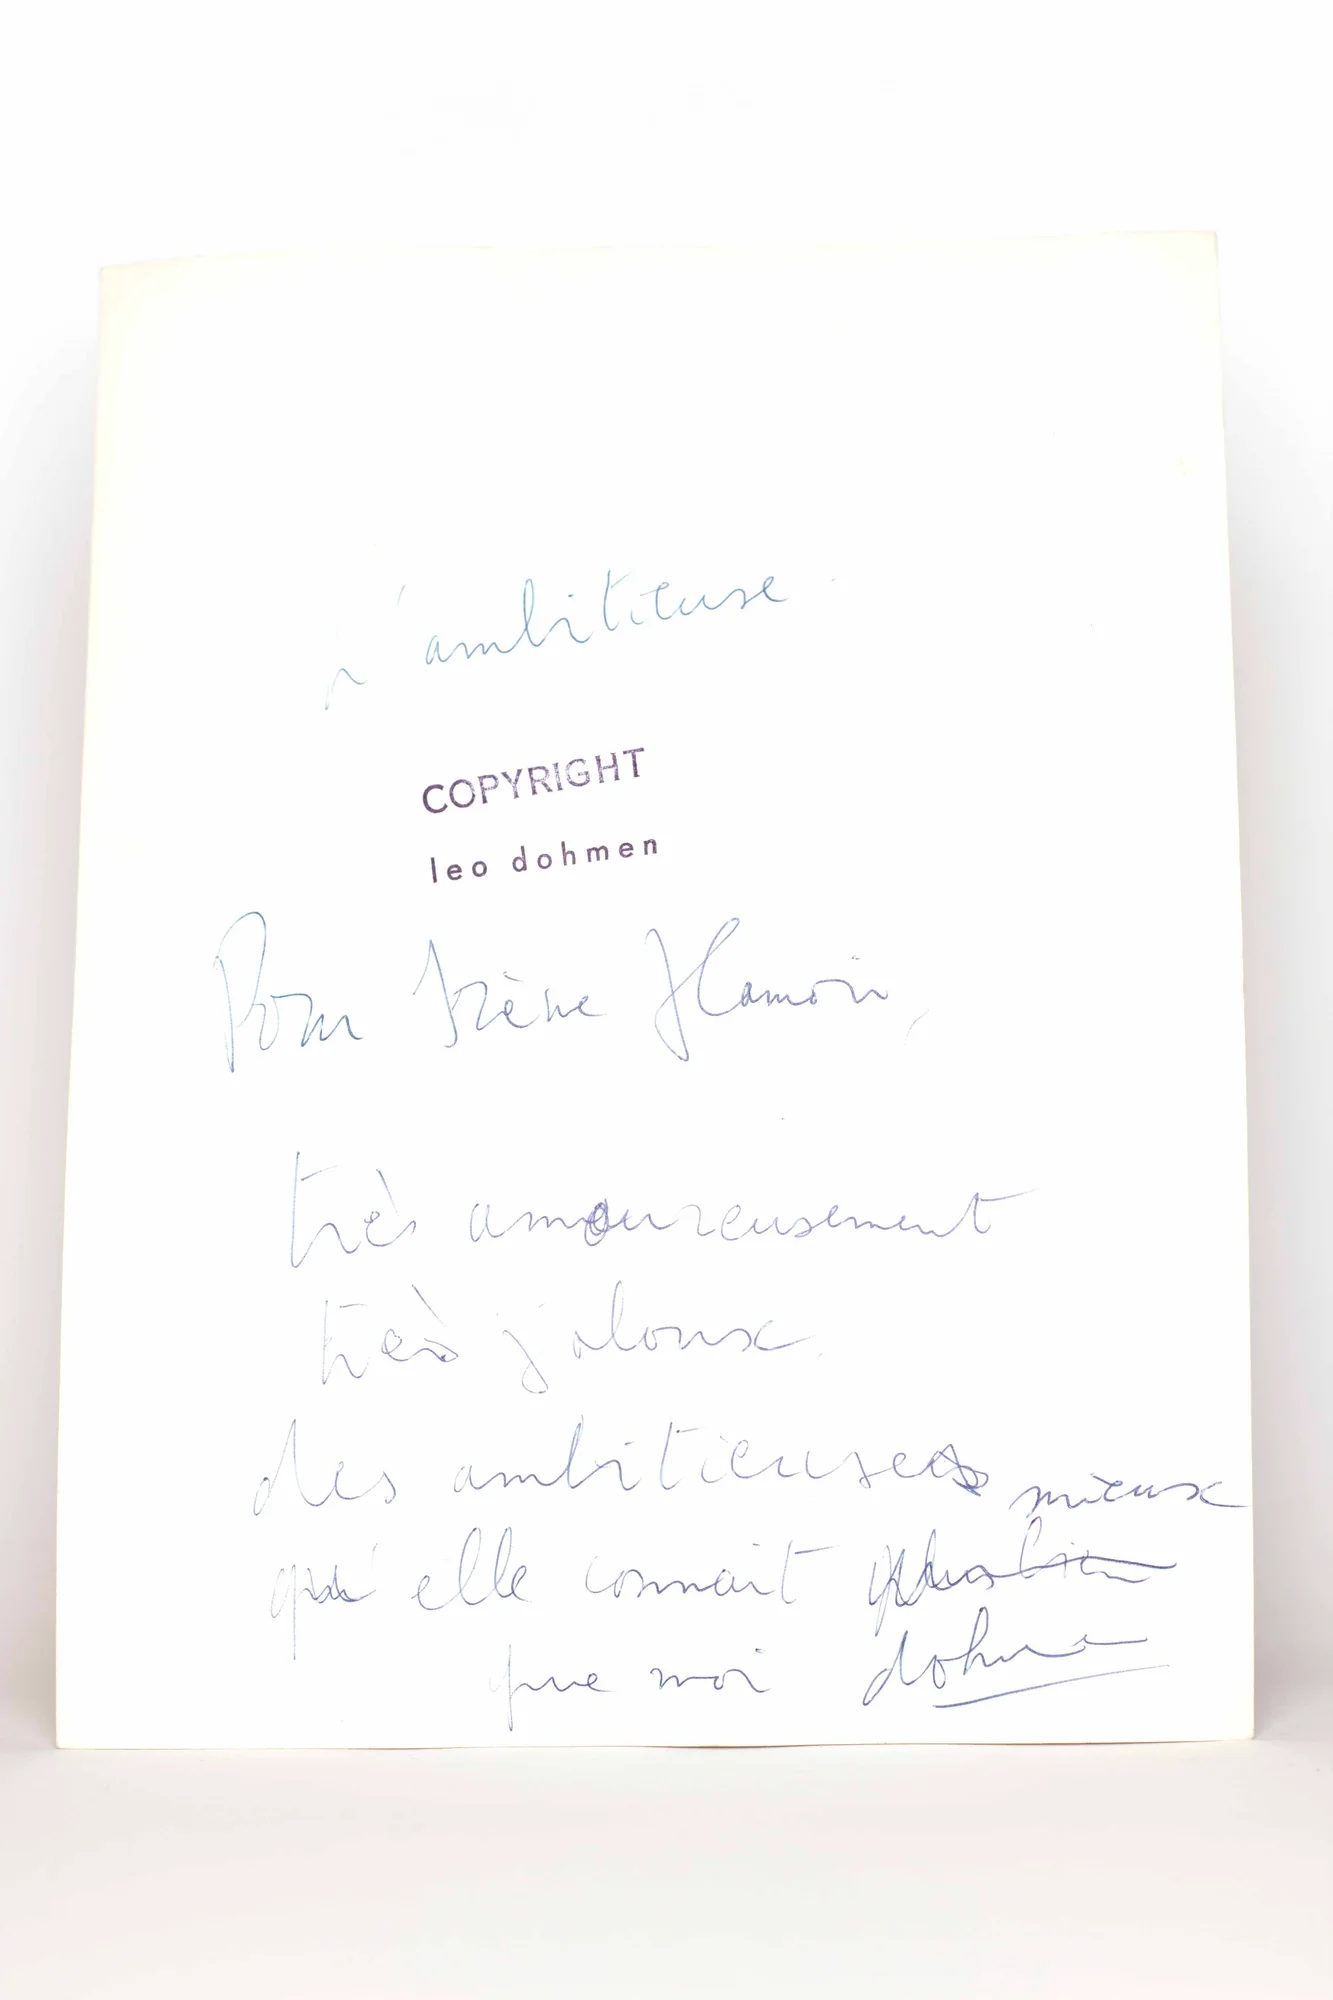 L'ambitieuse
COPYRIGHT
leo dohmen
Pour Irène Hamoir,
très amoureusement
très jaloux
des ambitieuses mieux
qu'elle connait
que moi dohmen